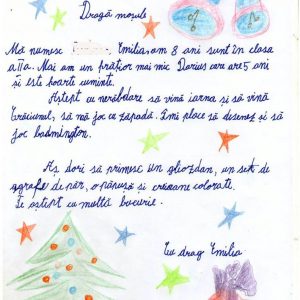 Dragă moșule
Mă numesc Emilia, am 8 ani sunt în clasa
a IIa. Mai am un frățior mai mic Darius care are 5 ani
și este foarte cuminte.
Aștept cu nerăbdare să vină iarna și să vină
Crăciunul, să mă joc cu zăpadă. Îmi place să desenez și să
joc badmington.
Aș dori să primesc un ghiozdan, un set de
agrafe de păr, o păpușă și creioane colorate.
Te aștept cu multă bucurie.
Cu drag Emilia